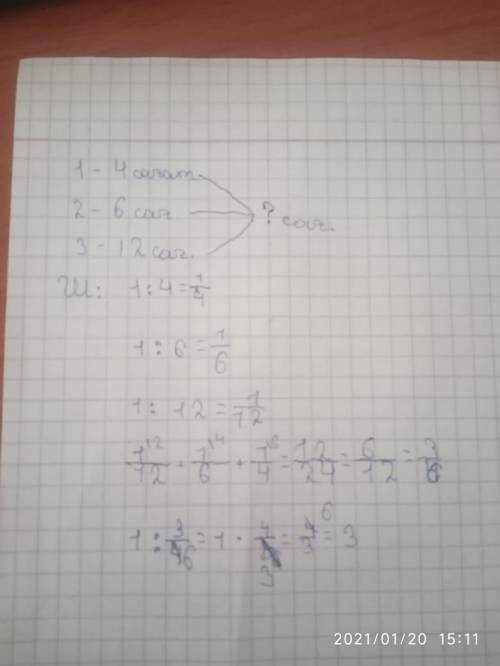 1 - 4 сағат
2 - 6 сағ
3 - 12 сағ.
? сағ.
Ш: 1 : 4 = 1/4
1 : 6 = 1/6
1 : 12 = 1/12
1/12 + 1/6 + 1/4 = 12/24 = 6/12 = 3/6
1 : 3/6 = 1 · = = 3
2021/01/20 15:11